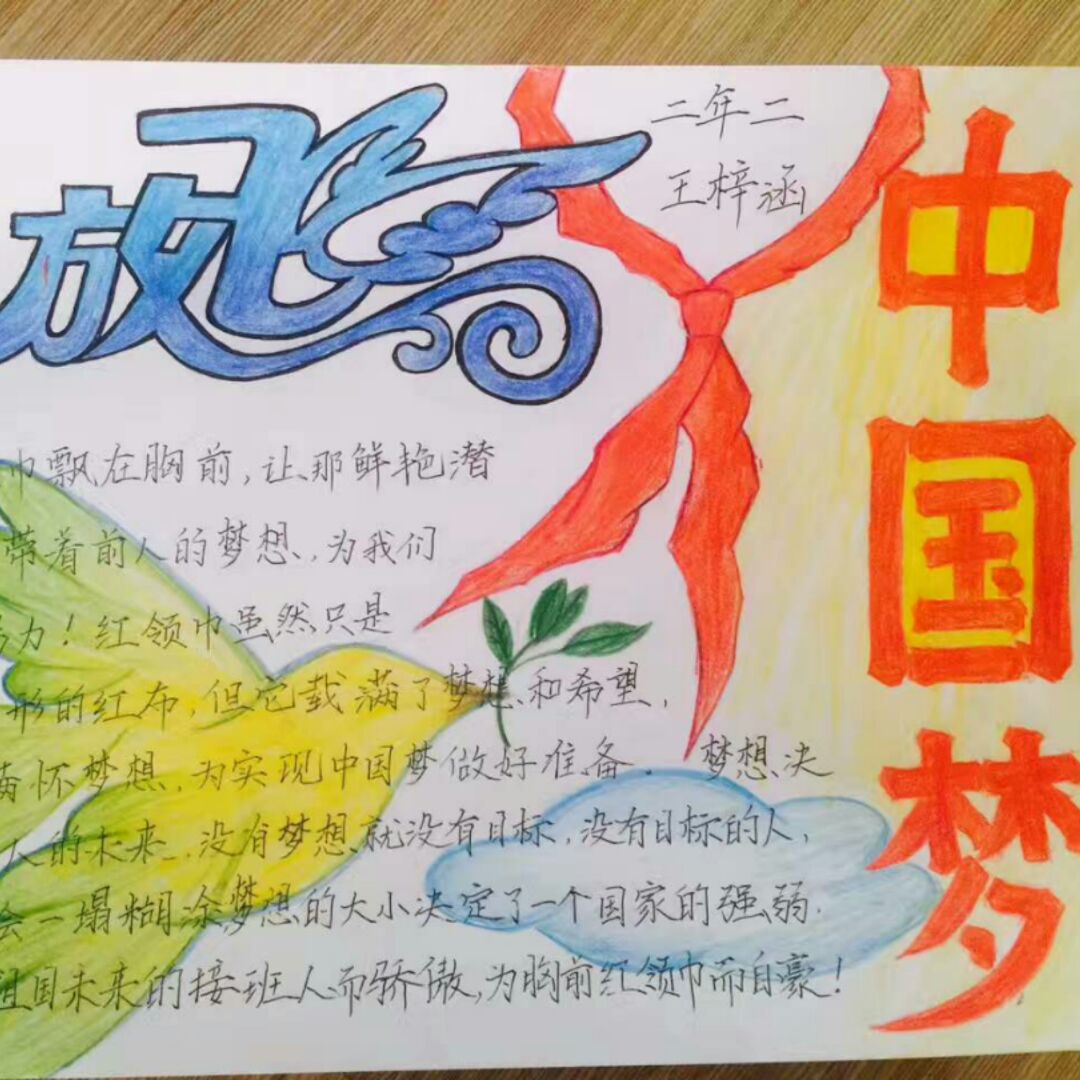 放飞
中国梦
二年二
王梓涵
巾飘在胸前,让那鲜艳潜
带着前人的梦想,为我们
力!红领巾虽然只是
形的红布,但它载满了梦想和希望,
满怀梦想,为实现中国梦做好准备。梦想决
人的未来,没有梦想就没有目标,没有目标的人,
会一塌糊涂梦想的大小决定了一个国家的强弱.
祖国未来的接班人而骄傲,为胸前红领巾而自豪!